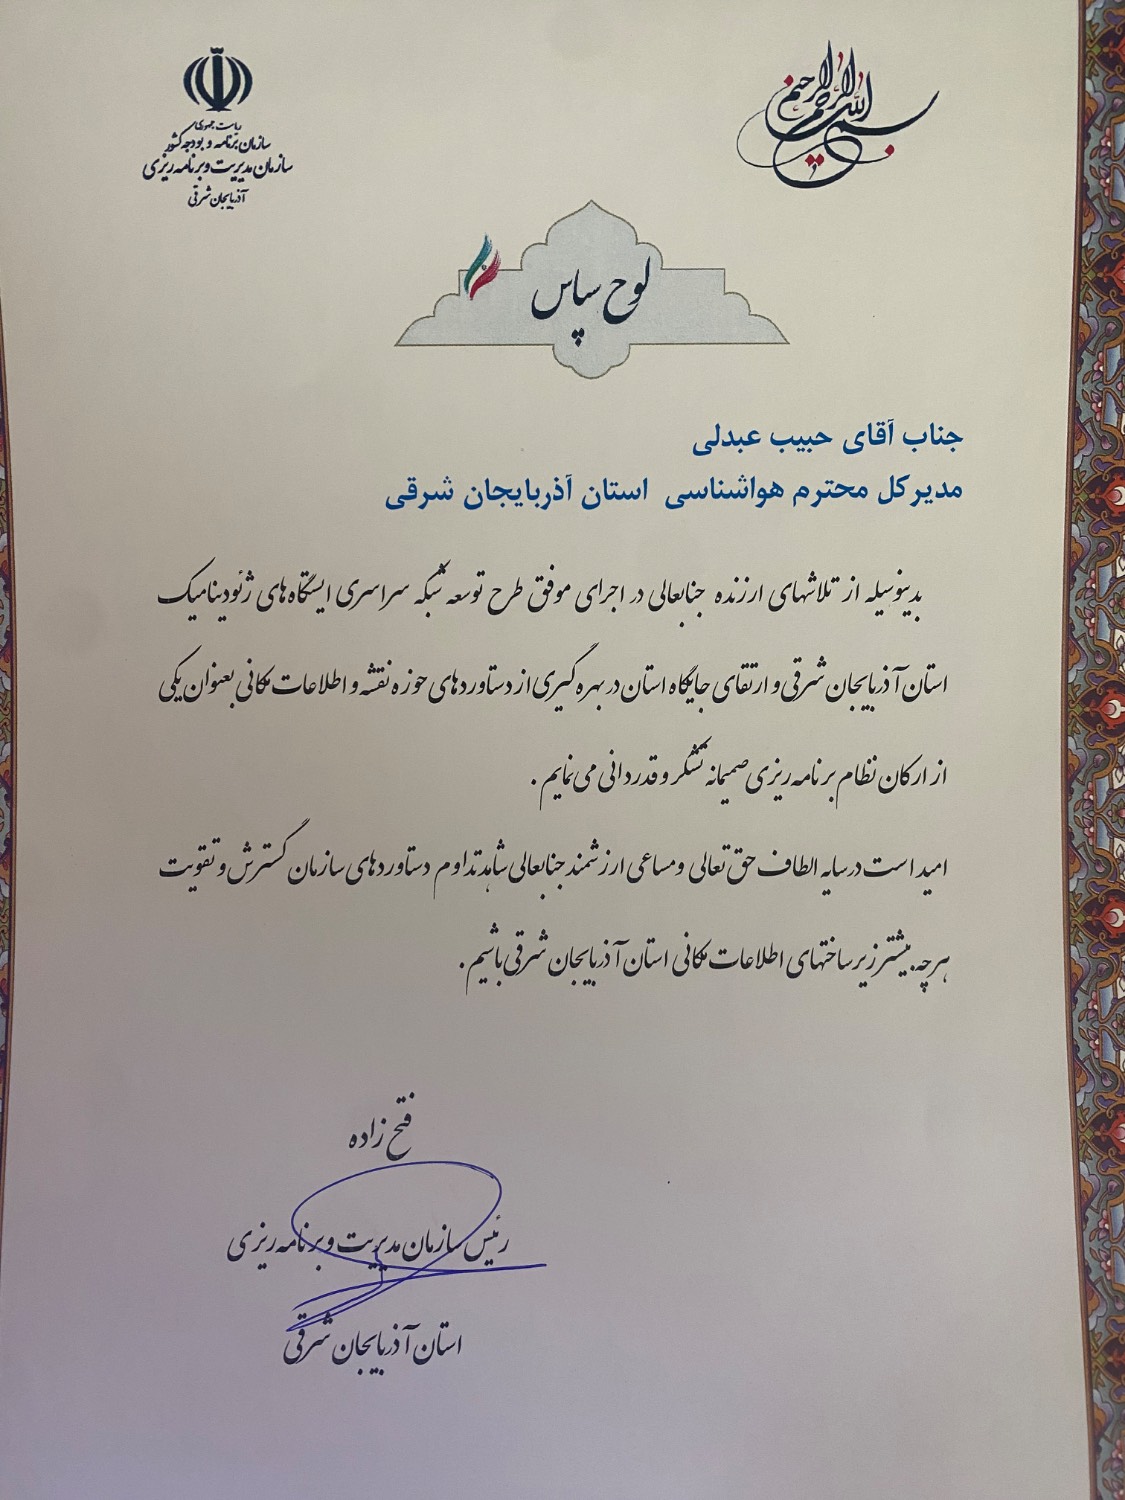 بسم الله الرحمن الرحیم
ریاست جمهوری
سازمان برنامه و بودجه کشور
سازمان مدیریت و برنامه ریزی
آذربایجان شرقی
لوح سپاس
جناب آقای حبیب عبدلی
مدیرکل محترم هواشناسی استان آذربایجان شرقی
بدینوسیله از تلاشهای ارزنده جنابعالی در اجرای موفق طرح توسعه شبکه سراسری ایستگاه های ژئودینامیک
استان آذربایجان شرقی و ارتقای جایگاه استان در بهره گیری از دستاوردهای حوزه نقشه و اطلاعات مکانی بعنوان یکی
از ارکان نظام برنامه ریزی صمیمانه تشکر و قدردانی می نمایم .
امید است در سایه الطاف حق تعالی و مساعی ارزشمند جنابعالی شاهد تداوم دستاوردهای سازمان گسترش و تقویت
هرچه بیشتر زیرساختهای اطلاعات مکانی استان آذربایجان شرقی باشیم .
فتح زاده
رئیس سازمان مدیریت و برنامه ریزی
استان آذربایجان شرقی